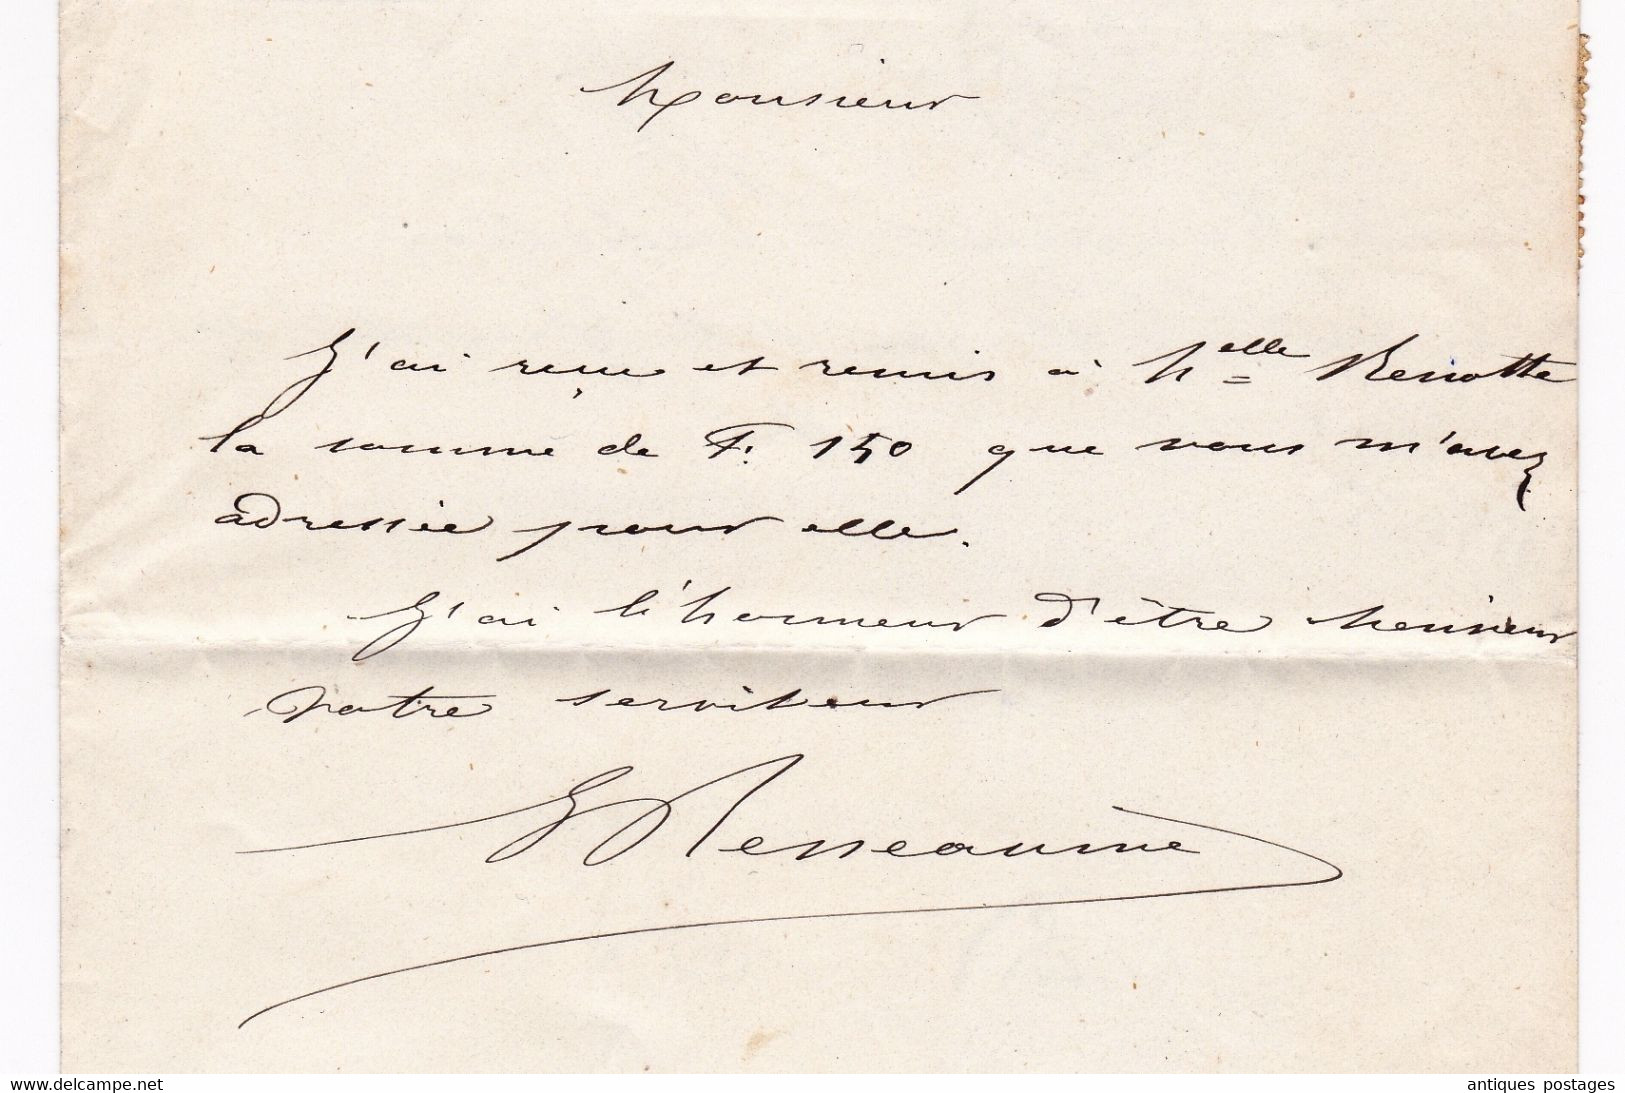 Monsieur
J'ai reçu et remis à Melle Renotte
la somme de F. 150 que vous m'avez
adressée pour elle.
J'ai l'honneur d'être Monsieur
votre serviteur
www.delcampe.net
antiques postages